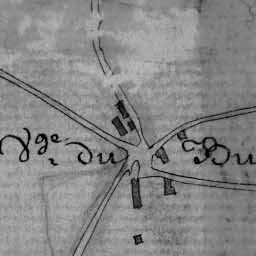 Vge. du Bu